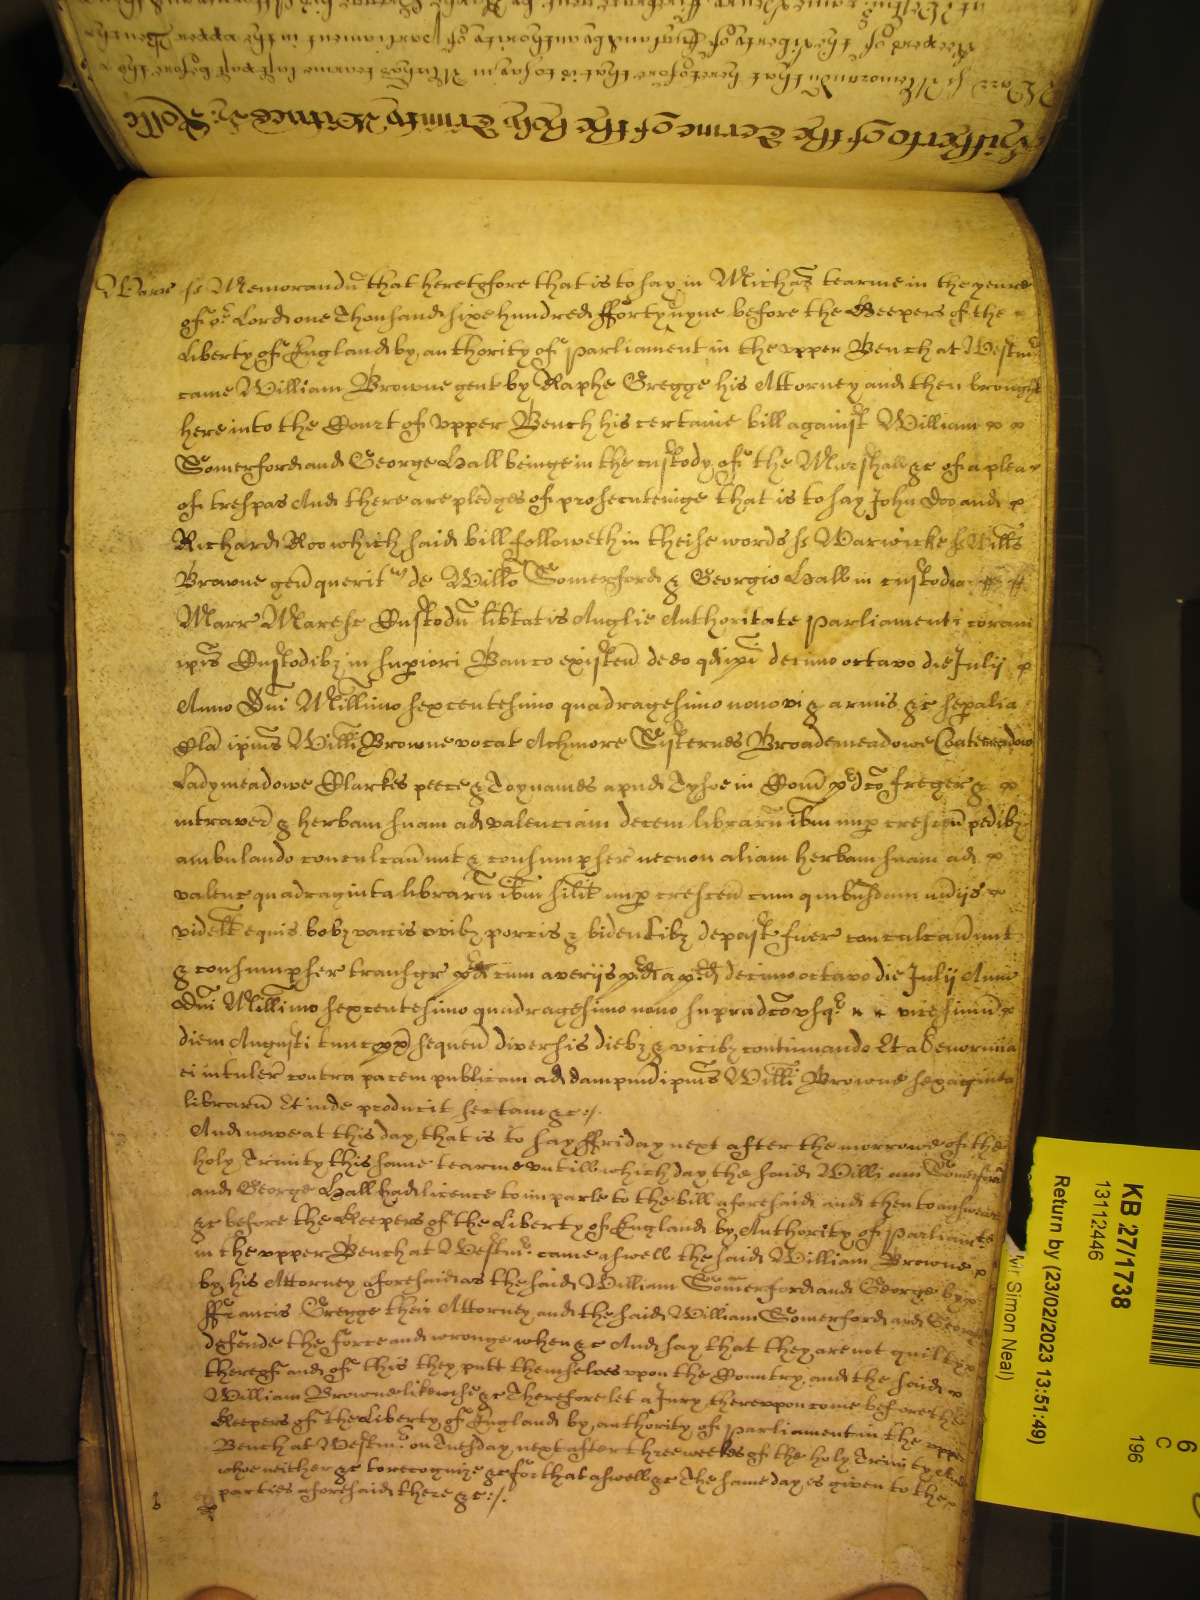 Hitherto of the Terme of the holy Trinity Witnes H: Rolle
Warr ss Memorandū that heretofore that is to say in
Keepers of the liberty of England by authority of Parliament in the upper Bench
Warr ss Memorandū that heretofore that is to say in Michās tearme in the yeare
of oʳ Lord one Thousand sixe hundred fforty nyne before the Keepers of the
Liberty of England by authority of Parliament in the upper Bench at Westmʳ
came William Browne gent by Raphe Gregge his Attorney and then brought
here into the Court of upper Bench his certaine bill against William
Somerford and George Hall beinge in the custody of the Marshall &c of a plea
of trespas And there are pledges of prosecuteinge that is to say John Doo and
Richard Roo which said bill followeth in theise words ss Warwicke ss Willūs
Browne gen̄ querit de Willō Somerford & Georgio Hall in custodia
Marr Maresc Custodū lib̄tatis Anglie Authoritate Parliamenti coram
ip̄is Custodibȝ in sup̄iori Banco existen̄ de eo qd ip̄i decimo octavo die Julij
Anno Dn̄i Millimo sexcentesimo quadragesimo nono vi & armis &c sep̄alia
Claūs ip̄ius Willi Browne vocat Achmore Sisternes Broademeadowe Coatemeadow
Ladymeadowe Clarkes peece & Toynames apud Tysoe in Com̄ p̄dcō freger &
intraver̄ & herbam suam ad valenciam decem librarū ib̄m nup crescen̄ pedibȝ
ambulando conculcaverunt & consumpser necnon aliam herbam suam ad
valenc quadraginta librarū ib̄m silīt nup crescen̄ cum quibusdam averijs
videlt equis bobȝ vaccis ovibȝ porcis & bidentibȝ depast fuer conculcaverunt
& consumpser transgr p̄d cum averijs p̄d a p̄d decimo octavo die Julij Anno
Dn̄i Millimo sexcentesimo quadragesimo nono supradcō usqʒ vicesimū
diem Augusti tunc px̄ sequen̄ diversis diebȝ & vicibȝ continuando Et al enormia
ei intuler contra pacem publicam ad dampnū ip̄ius Willi Browne sexaginta
librarū Et inde producit sectam &c:/.
And nowe at this day that is to say ffriday next after the morrowe of the
holy Trinity this same tearme untill which day the said William Somerford
and George Hall had licence to imparle to the bill aforesaid and then to answere
&c before the Keepers of the Liberty of England by Authority of Parliamte
in the upper Bench at Westmʳ came aswell the said William Browne
by his Attorney aforesaid as the said William Somerford and George by
ffrancis Gregge their Attorney and the said William Somerford and George
defende the force and wronge when &c And say that they are not guilty
thereof and of this they putt themselves upon the Country and the said
William Browne likewise &c Therefore let a Jury thereupon come before the
Keepers of the Liberty of England by authority of Parliament in the upper
Bench at Westmʳ on Tuesday next after three weekes of the holy Trinity And
whoe neither &c to recognize &c for that aswell &c The same day is given to the
parties aforesaid there &c:/.
KB 27/1738
13112446
Return by (23/02/2023 13:51:49)
Simon Neal)
6
C
196